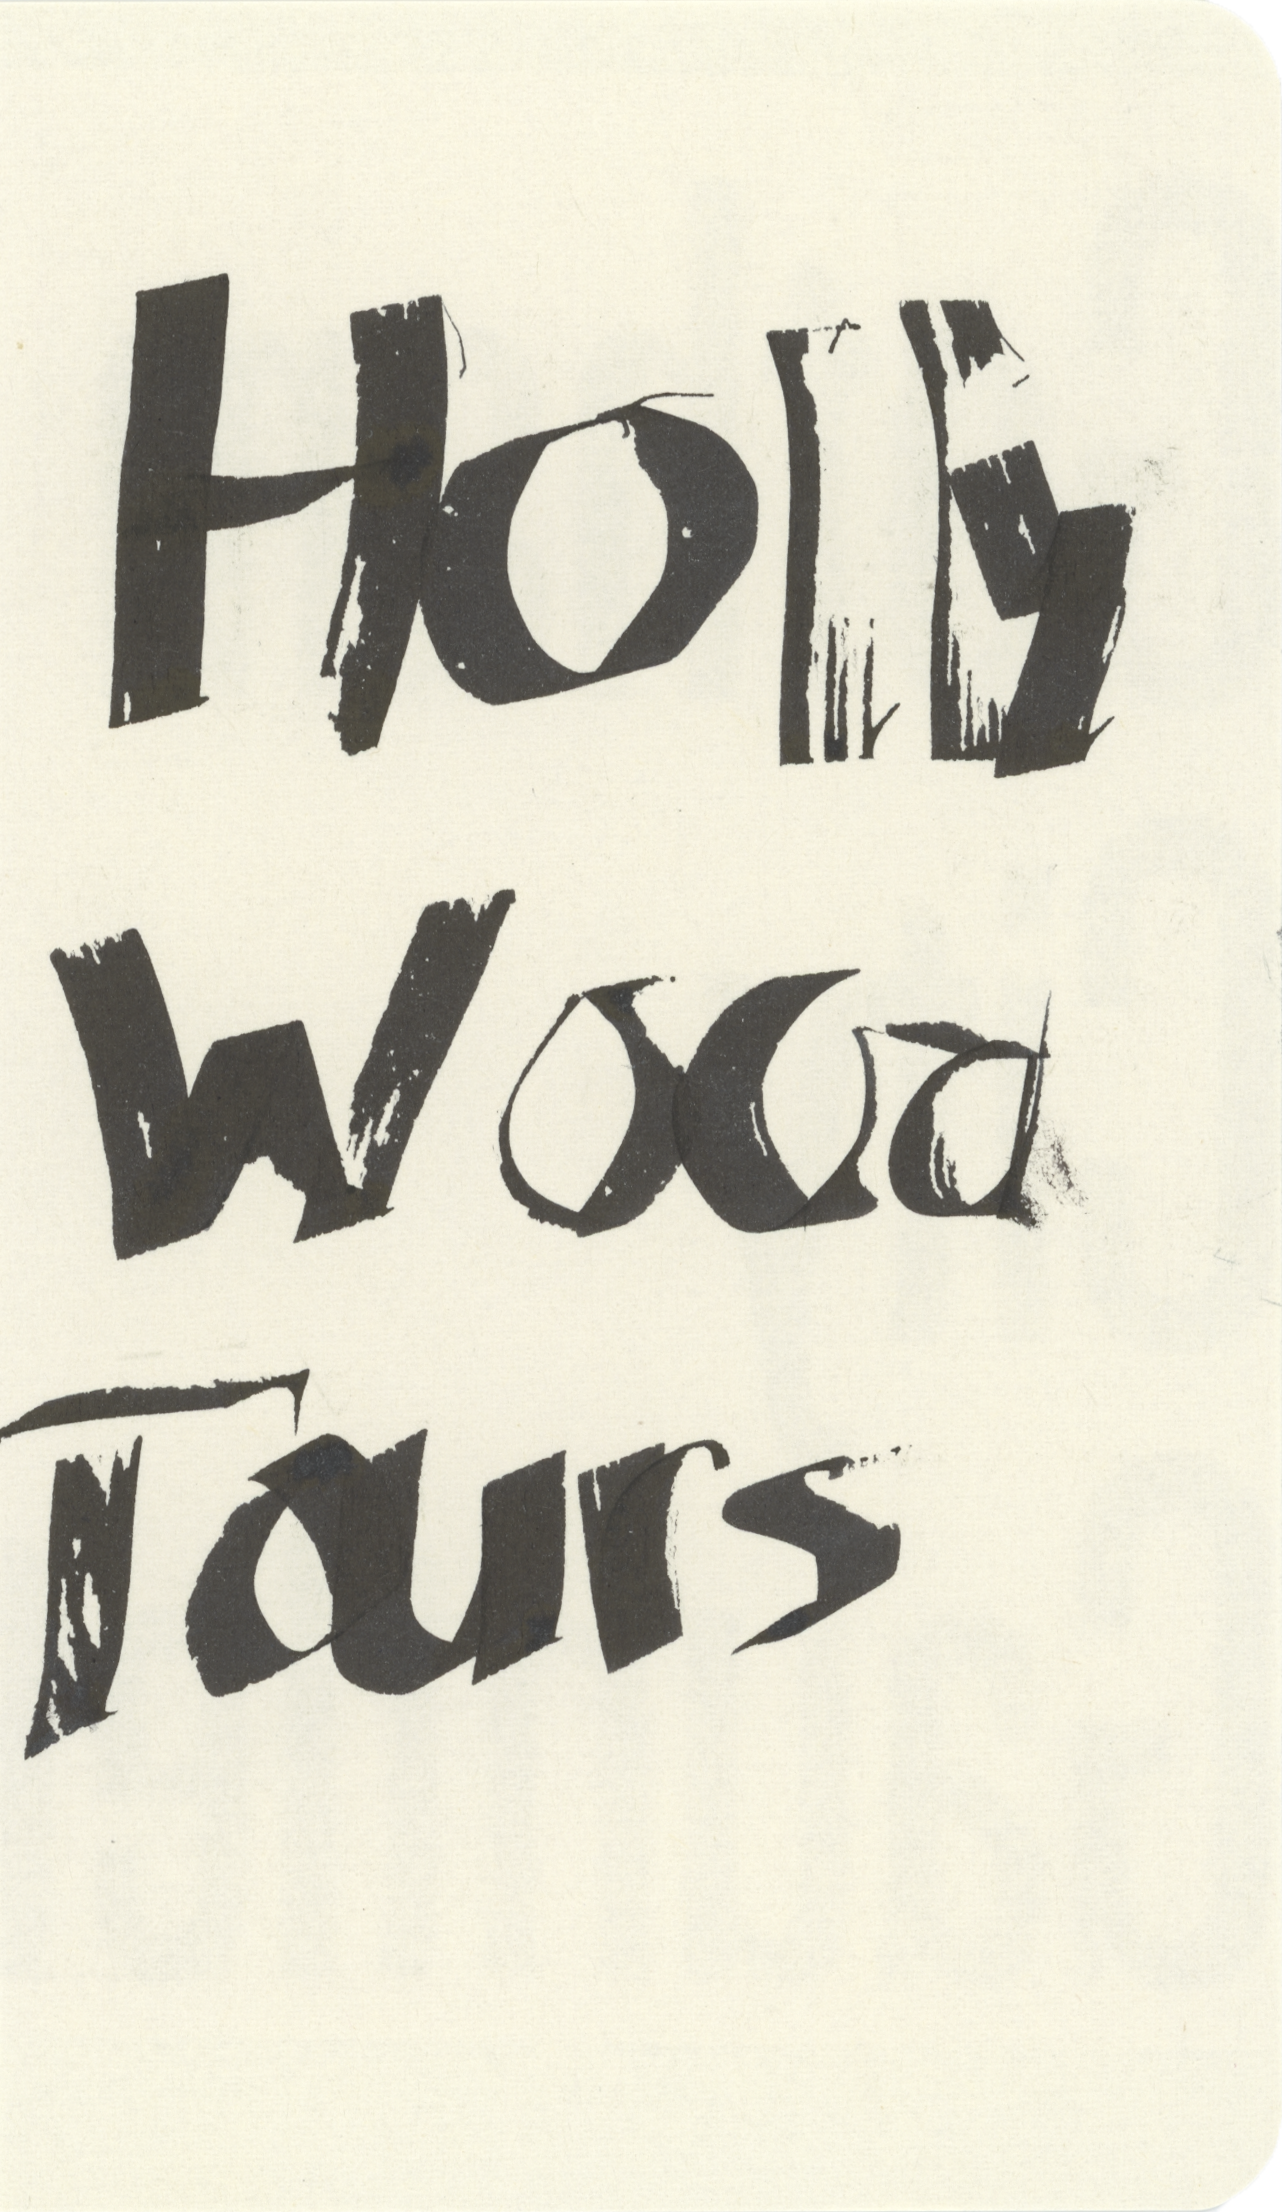 Holly
Wood
Tours